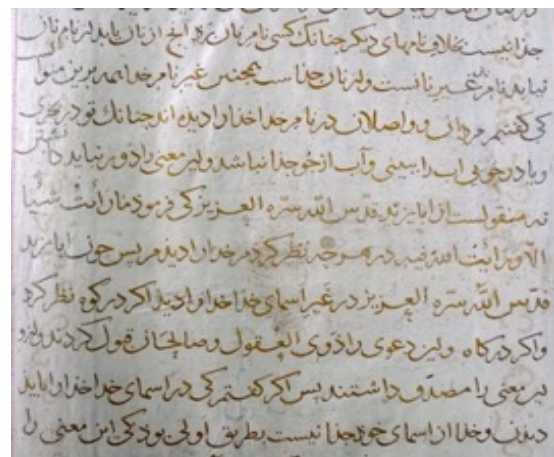 جذا نیست بخلاف نامهای دیگر چنانک کسی نام نان برد آنچ از نان یابد از نام نان
نیابد نام نان غیر نانست و از نان جذاست همچنین غیر نام خدا بمرد برین منوال
کی کفتم مردانی و واصلان در نام خدا خدا را دیده اند چنانک تو در بحری
و یا در جویی آب را بینی و آب از جو جدا نباشد و این معنی را دور نباید
نه منقولست از ابایزید قدس الله سره العزیز کی فرمود ما رأیت شیئا
الا و رأیت الله فیه در هرچه نظر کردم خدا را دیدم پس چون ابایزید
قدس الله سره العزیز در غیر اسمای خدا خدا را دید اکر در کوه نظر کرد
و اکر در کاه و این دعوی را ذوی العقول و صالحان قبول کردند و او را
بر معنی را مصدق داشتند پس اکر کفتم کی در اسمای خدا خدا را باید
دیدن و خدا از اسمای خود جذا نیست بطریق اولی بود کی این معنی را